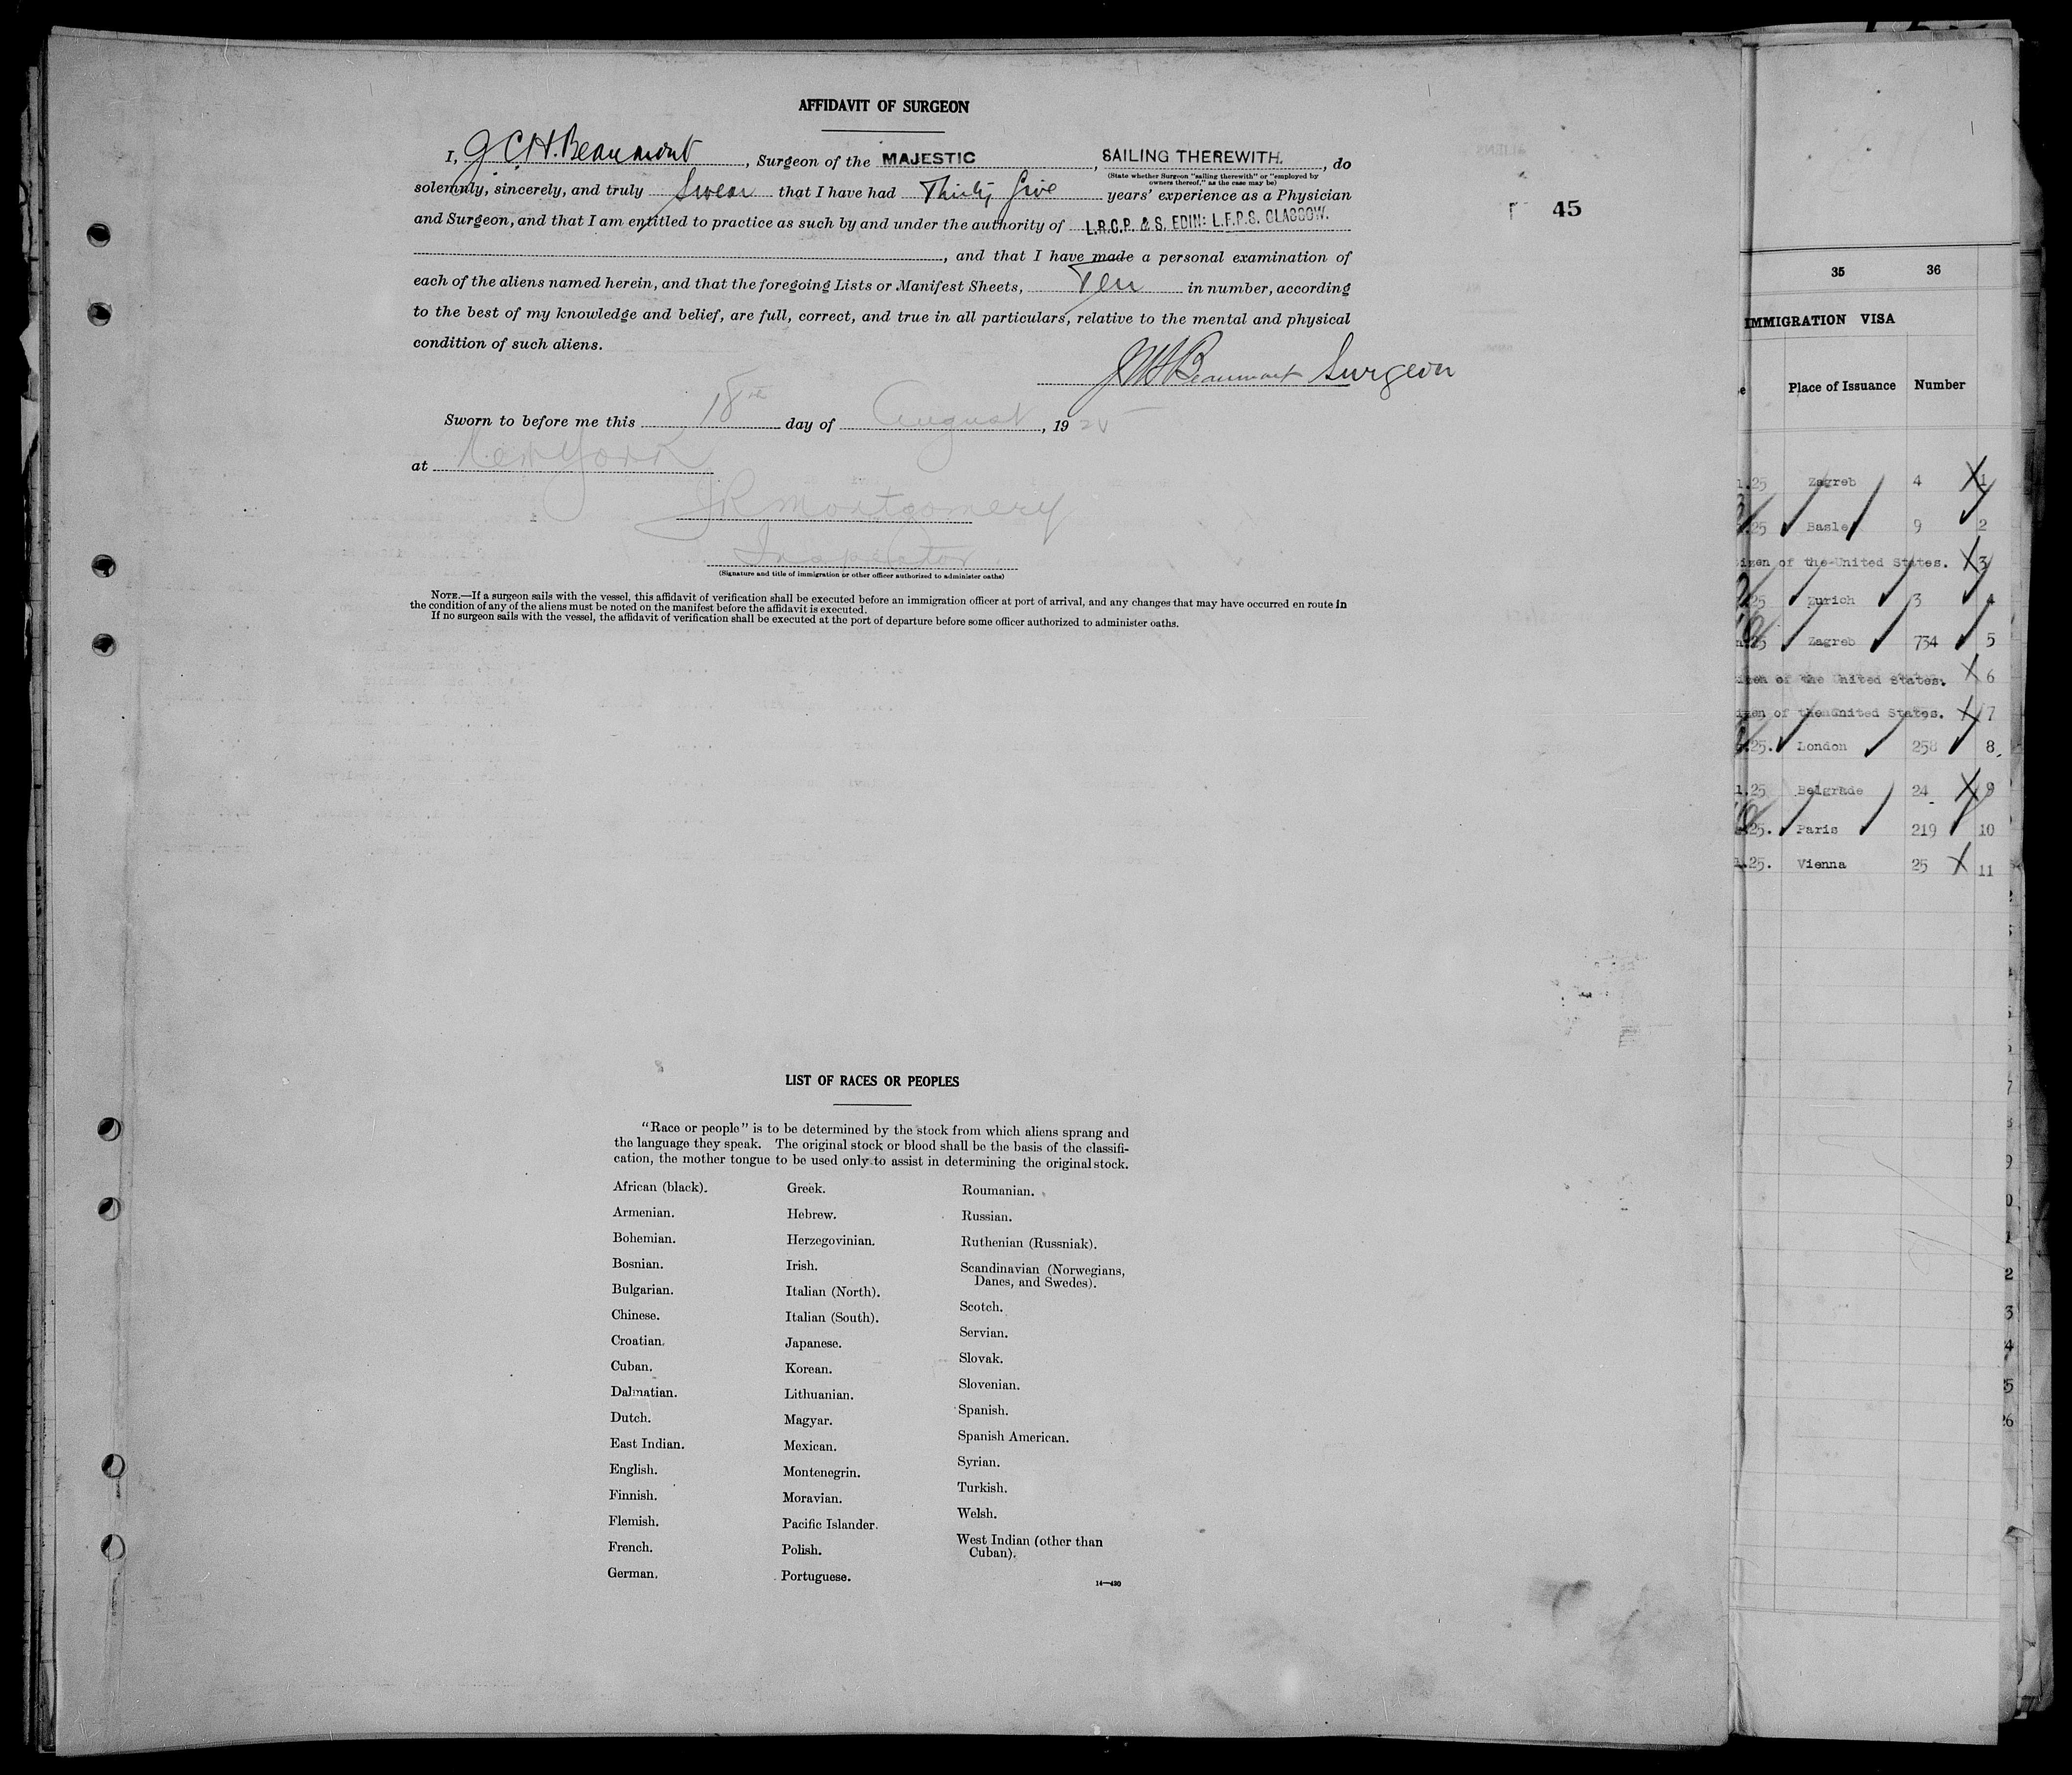 AFFIDAVIT OF SURGEON
I, J C H. Beaumont, Surgeon of the MAJESTIC, SAILING THEREWITH., do
(State whether Surgeon "sailing therewith" or "employed by
owners thereof," as the case may be)
solemnly, sincerely, and truly Swear that I have had Thirty five years' experience as a Physician
and Surgeon, and that I am entitled to practice as such by and under the authority of L.R.C.P. & S. EDIN: L.F.P.S. GLASGOW.
, and that I have made a personal examination of
each of the aliens named herein, and that the foregoing Lists or Manifest Sheets, Ten in number, according
to the best of my knowledge and belief, are full, correct, and true in all particulars, relative to the mental and physical
condition of such aliens.
Beaumont Surgeon
Sworn to before me this 18th day of August, 1925
at New York
JR Montgomery
Inspector
(Signature and title of immigration or other officer authorized to administer oaths)
NOTE.—If a surgeon sails with the vessel, this affidavit of verification shall be executed before an immigration officer at port of arrival, and any changes that may have occurred en route in
the condition of any of the aliens must be noted on the manifest before the affidavit is executed.
If no surgeon sails with the vessel, the affidavit of verification shall be executed at the port of departure before some officer authorized to administer oaths.
45
LIST OF RACES OR PEOPLES
"Race or people" is to be determined by the stock from which aliens sprang and
the language they speak. The original stock or blood shall be the basis of the classifi-
cation, the mother tongue to be used only to assist in determining the original stock.
African (black).
Armenian.
Bohemian.
Bosnian.
Bulgarian.
Chinese.
Croatian.
Cuban.
Dalmatian.
Dutch.
East Indian.
English.
Finnish.
Flemish.
French.
German.
Greek.
Hebrew.
Herzegovinian.
Irish.
Italian (North).
Italian (South).
Japanese.
Korean.
Lithuanian.
Magyar.
Mexican.
Montenegrin.
Moravian.
Pacific Islander.
Polish.
Portuguese.
Roumanian.
Russian.
Ruthenian (Russniak).
Scandinavian (Norwegians,
Danes, and Swedes).
Scotch.
Servian.
Slovak.
Slovenian.
Spanish.
Spanish American.
Syrian.
Turkish.
Welsh.
West Indian (other than
Cuban).
14—430
35 36
IMMIGRATION VISA
Place of Issuance Number
25 Zagreb 4 X 1
25 Basle 9 2
izen of the United States. X 3
25 Zurich 3 4
25 Zagreb 734 5
izen of the United States. X 6
izen of the United States. X 7
25. London 258 8
25 Belgrade 24 X 9
25. Paris 219 10
25. Vienna 25 X 11